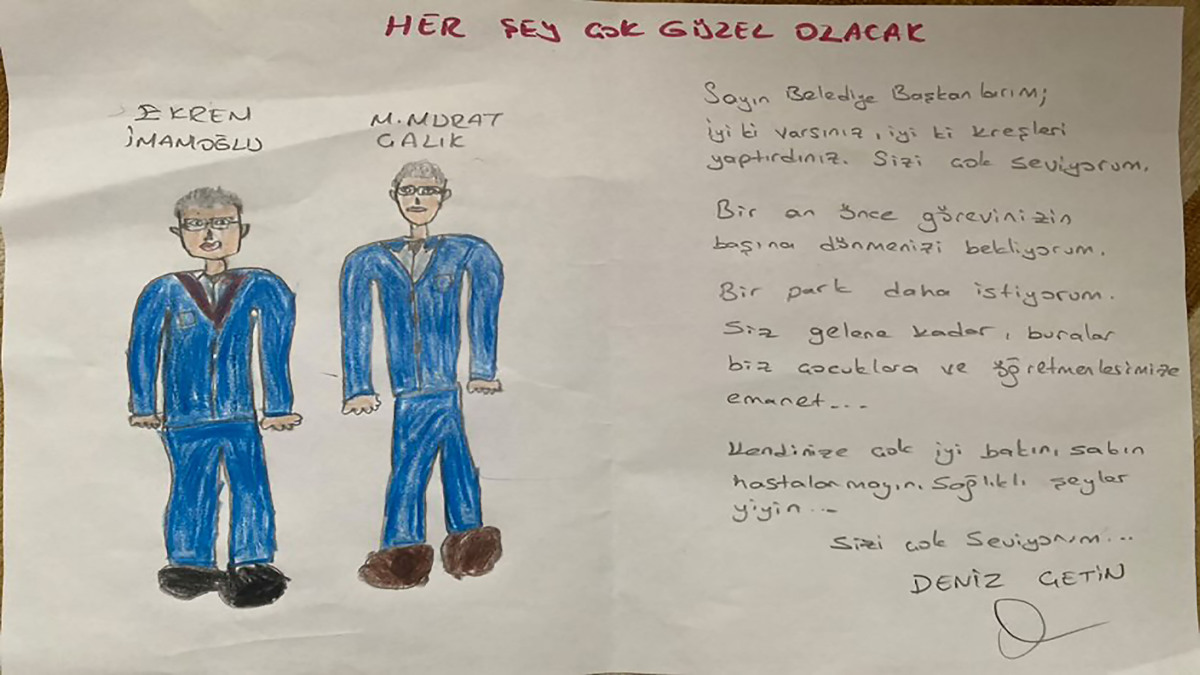 HER ŞEY ÇOK GÜZEL OLACAK
EKREM
İMAMOĞLU
M. MURAT
ÇALIK
Sayın Belediye Başkanlarım;
iyi ki varsınız, iyi ki kreşleri
yaptırdınız. Sizi çok seviyorum.
Bir an önce görevinizin
başına dönmenizi bekliyorum.
Bir park daha istiyorum.
Siz gelene kadar, buralar
biz çocuklara ve öğretmenlerimize
emanet...
Kendinize çok iyi bakın, sakın
hastalanmayın. Sağlıklı şeyler
yiyin...
Sizi çok seviyorum...
DENİZ ÇETİN